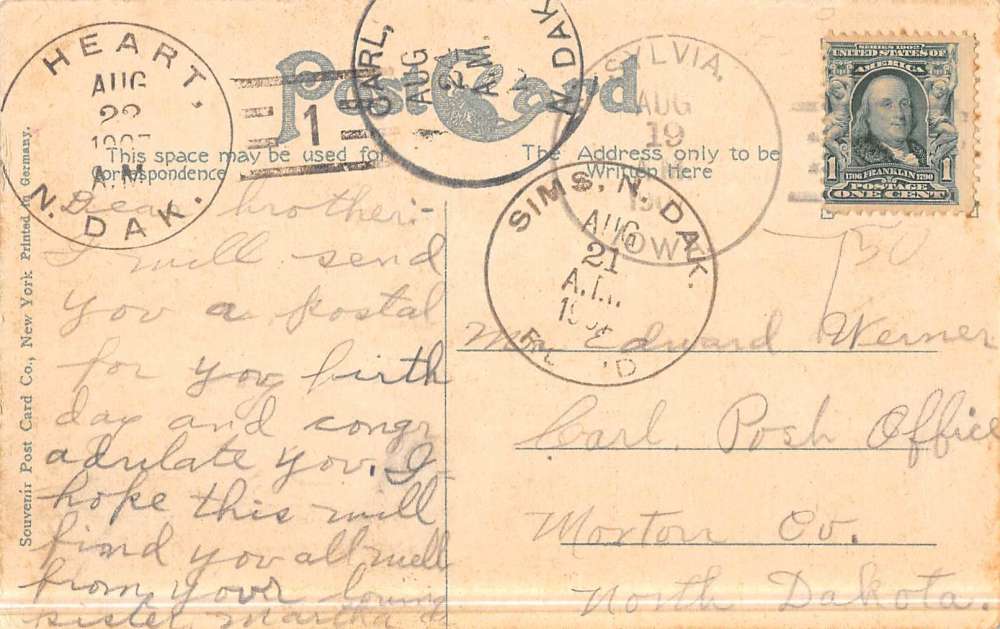 HEART,
AUG
22
1907
A.M.
N. DAK.
1
CARL,
AUG
A.M.
N. DAK
SYLVIA,
AUG
19
IOWA
SERIES 1902
UNITED STATES OF
AMERICA
1706 FRANKLIN 1790
1 POSTAGE 1
ONE CENT
Post Card
This space may be used for
Correspondence
The Address only to be
Written Here
SIMS, N. DAK.
AUG
21
A.M.
REC'D
50
Souvenir Post Card Co., New York Printed in Germany.
Dear brother:-
I will send
you a postal
for yoy birth
day and congr
adulate you. I
hope this will
find you all well
from your loving
sister Martha
Mr. Edward Werner
Carl, Posh Office
Morton Co.
North Dakota.